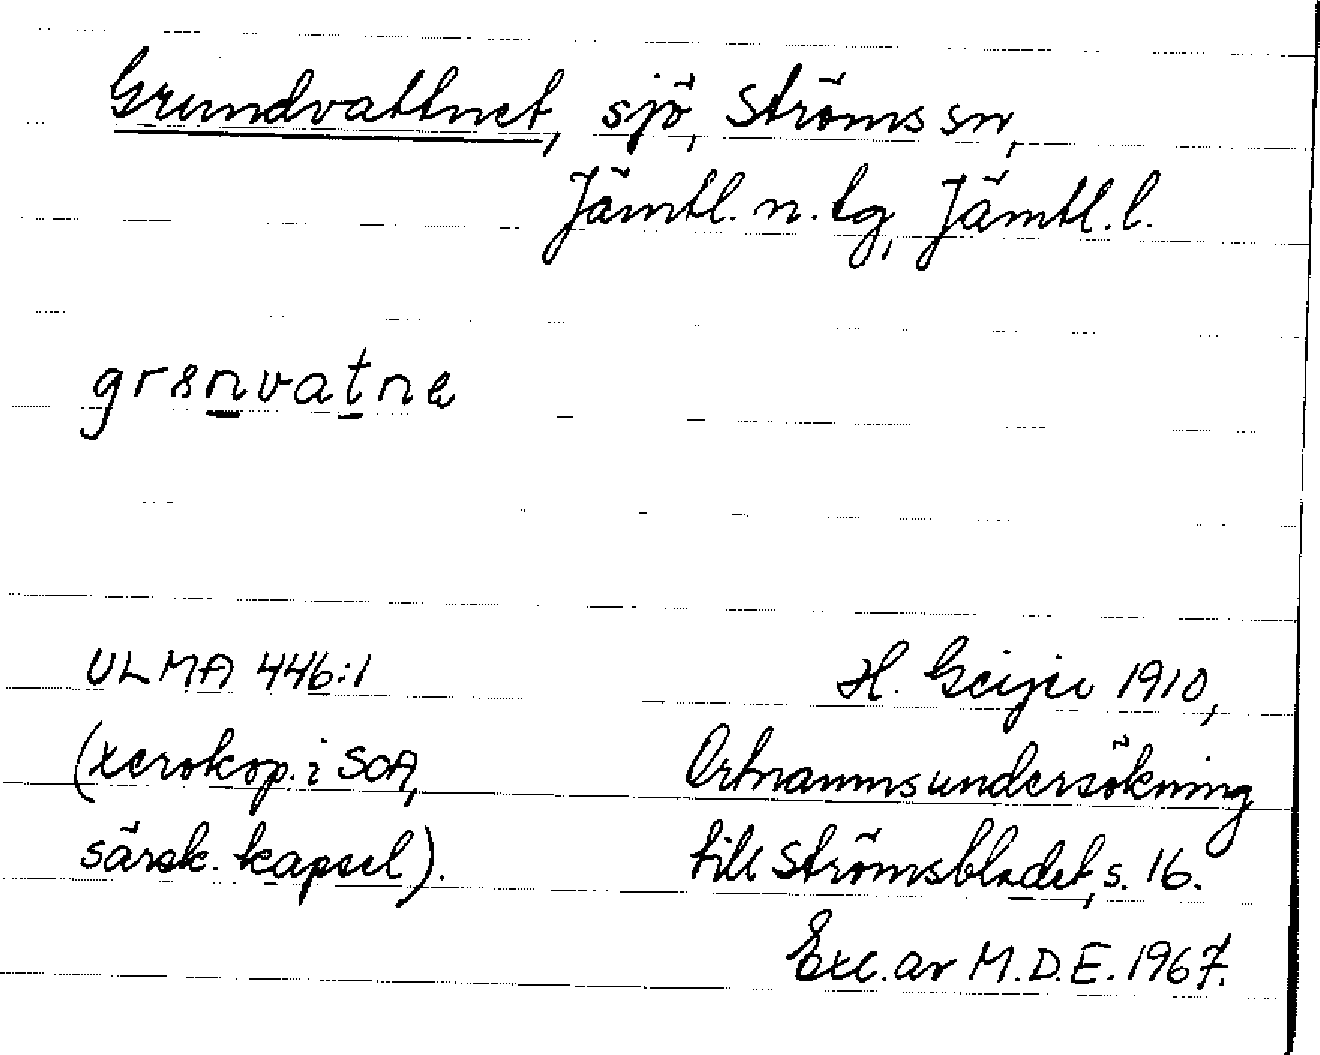 Grundvattnet, sjö, Ströms sn,
Jämtl. n. tg, Jämtl. l.
ULMA 446:1
(xerokop. i SOA,
särsk. kapsel).
H. Geijer 1910,
Ortnamnsundersökning
till Strömsbladet, s. 16.
Exc. av M.D.E. 1967.